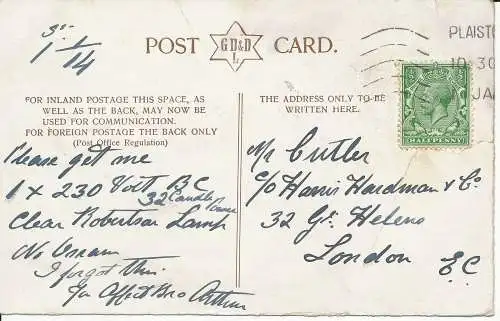 3rd
1/1/14
POST CARD.
GDD&D
L
PLAISTO
10.30
JA
HALFPENNY
FOR INLAND POSTAGE THIS SPACE, AS
WELL AS THE BACK, MAY NOW BE
USED FOR COMMUNICATION.
FOR FOREIGN POSTAGE THE BACK ONLY
(Post Office Regulation)
Please get me
1 x 230 Volt BC
32 Candle Power
Clear Robertson Lamp
No Osram
I forgot this.
Yr Affect Bro Arthur
THE ADDRESS ONLY TO BE
WRITTEN HERE.
Mr Cutler
C/o Harris Hardman & Co.
32 Gt. Helens
London
E.C.